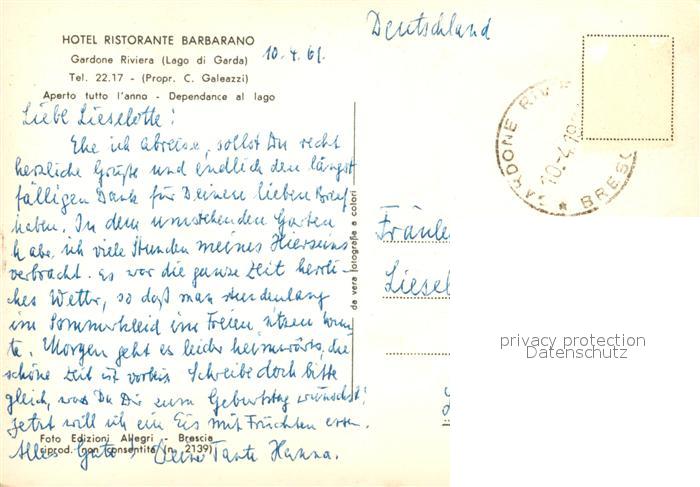 Deutschland
HOTEL RISTORANTE BARBARANO
Gardone Riviera (Lago di Garda)
10.4.61.
Tel. 22.17 - (Propr. C. Galeazzi)
Aperto tutto l'anno - Dependance al lago
Liebe Lieselotte!
Ehe ich abreise, sollst Du recht
herzliche Grüße und endlich den längst
fälligen Dank für Deinen lieben Brief
haben. In dem umstehenden Garten
habe ich viele Stunden meines Hierseins
verbracht. Es war die ganze Zeit herrli-
ches Wetter, so daß man stundenlang
im Sommerkleid im Freien sitzen konn-
te. Morgen geht es leider heimwärts, die
schöne Zeit ist vorbei. Schreibe doch bitte
gleich, was Du Dir zum Geburtstag wünschst!
Jetzt will ich ein Eis mit Früchten essen.
Alles Gute! Deine Tante Hanna.
Foto Edizioni Allegri - Brescia
riprod. non consentita (n. 2139)
da vera fotografia a colori
GARDONE RIVIE
10.4.19
BRESC
Fräule
Liesel
privacy protection
Datenschutz